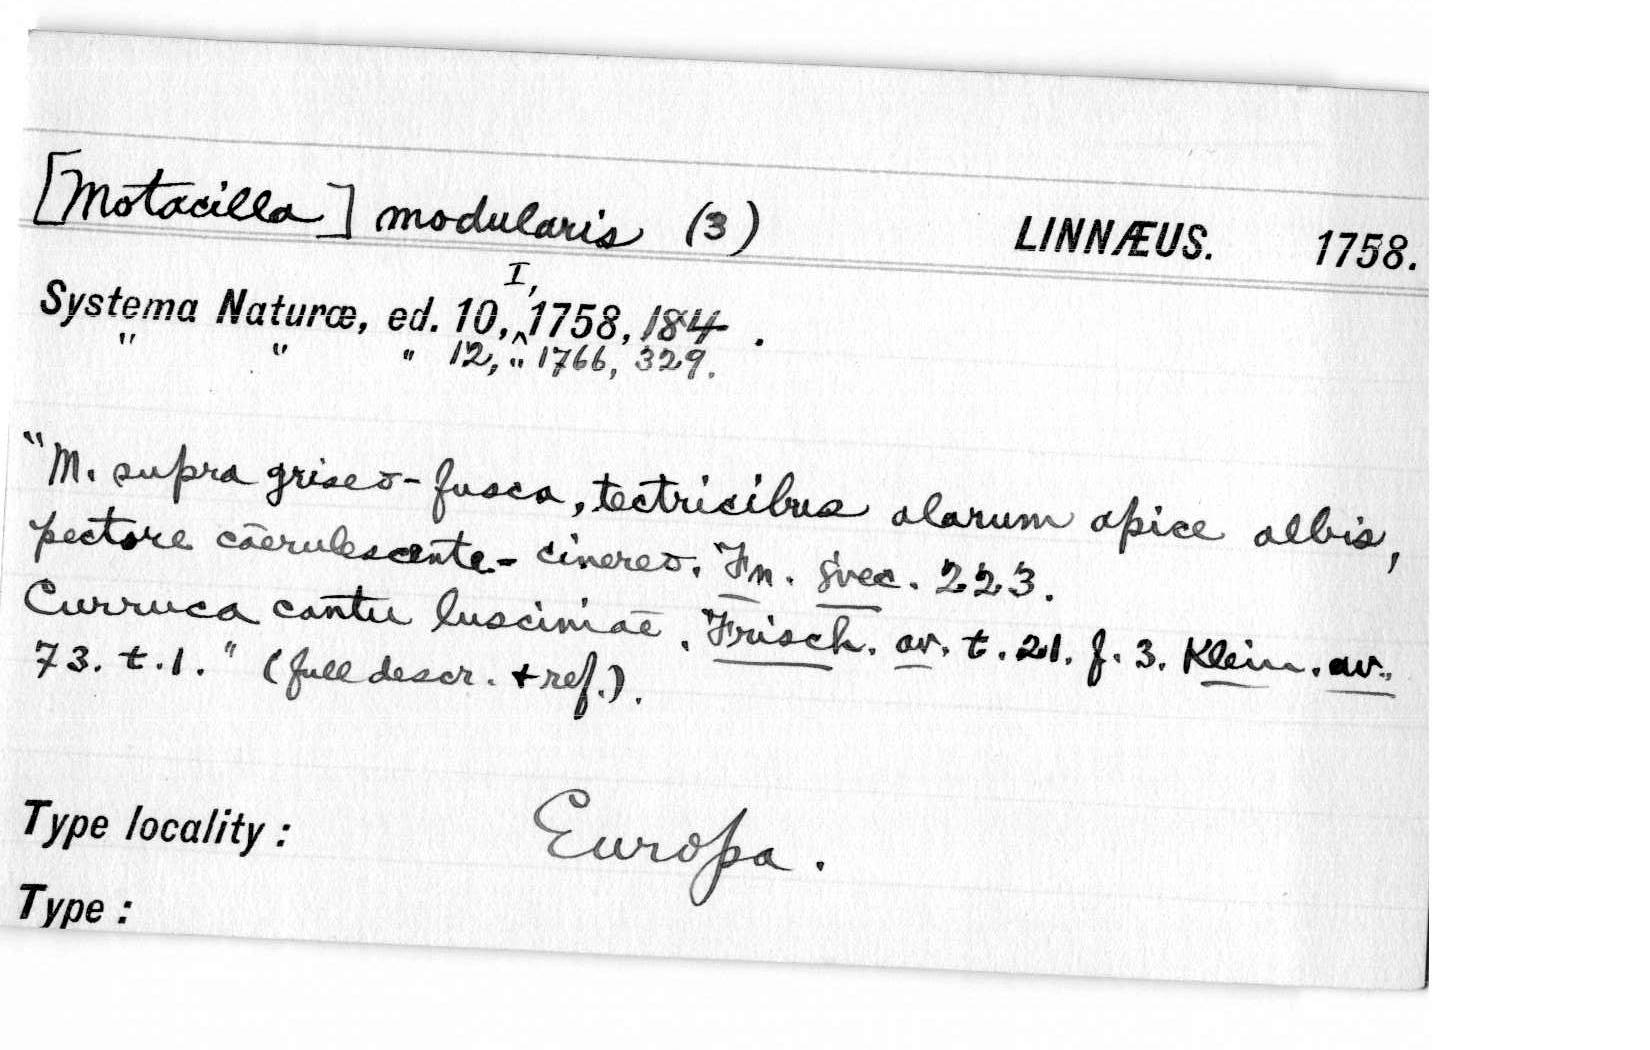 [Motacilla] modularis (3) LINNÆUS. 1758.
Systema Naturæ, ed. 10, I, 1758, 184.
" " " 12, " 1766, 329.
"M. supra griseo-fusca, tectricibus alarum apice albis,
pectore cāerulescente-cinereo. Fn. svec. 223.
Curruca cantu lusciniāe. Frisch. av. t. 21. f. 3. Klein. av.,
73. t. 1." (full descr. + ref.).
Type locality: Europa.
Type: